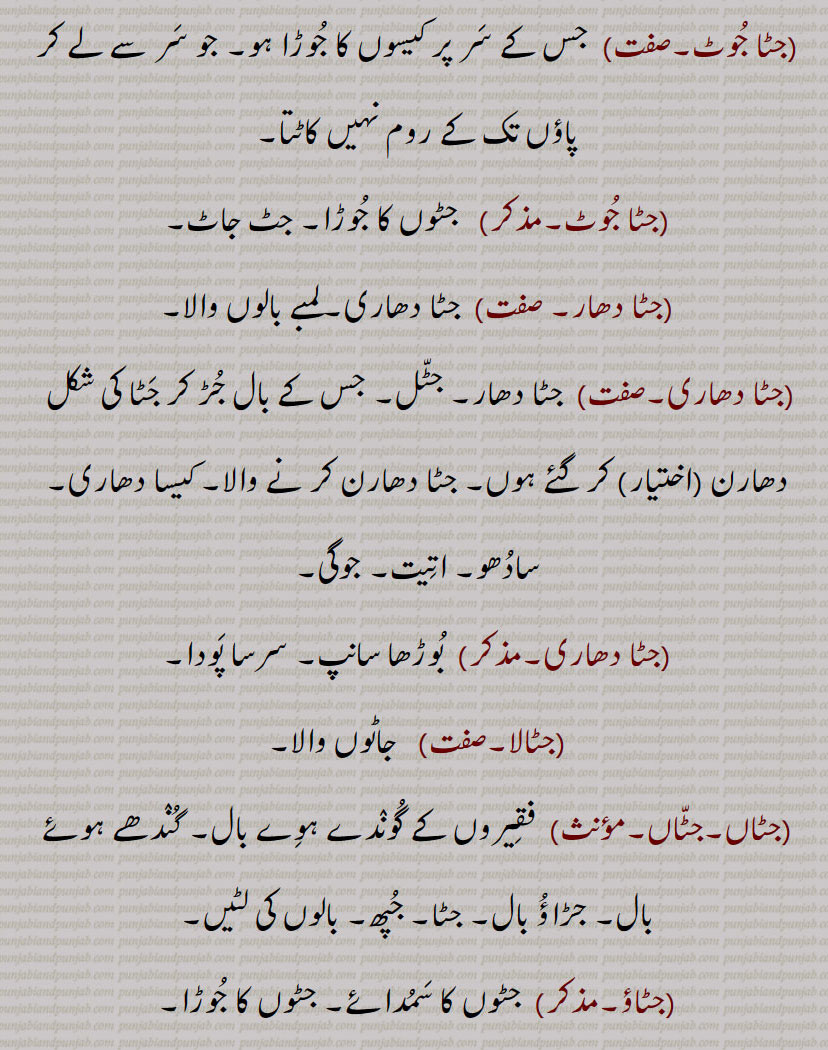 (جٹا جُوٹ۔صفت) جس کے سَر پر کیسوں کا جُوڑا ہو۔ جو سَر سے لے کر
پاؤں تک کے روم نہیں کاٹتا۔
(جٹا جُوٹ۔مذکر) جٹوں کا جُوڑا۔ جٹ جاٹ۔
(جٹا دھار۔ صفت) جٹا دھاری۔لمبے بالوں والا۔
(جٹا دھاری۔صفت) جٹا دھار۔ جٹّل۔ جس کے بال جُڑ کر جَٹا کی شکل
دھارن (اختیار) کر گئے ہوں۔ جٹا دھارن کر نے والا۔ کیسا دھاری۔
سادُھو۔ اتِیت۔ جوگی۔
(جٹا دھاری۔مذکر) بُوڑھا سانپ۔ سرسا پَودا۔
(جٹالا۔صفت) جاٹوں والا۔
(جٹاں۔جٹّاں۔مؤنث) فقِیروں کے گُونْدے ہوِے بال۔ گُنْدھے ہوئے
بال۔ جڑاؤُ بال۔ جٹا۔ جُپھ۔ بالوں کی لٹیں۔
(جٹاؤ۔مذکر) جٹوں کا سَمُدائے۔ جٹوں کا جُوڑا۔
punjabiandpunjab.com